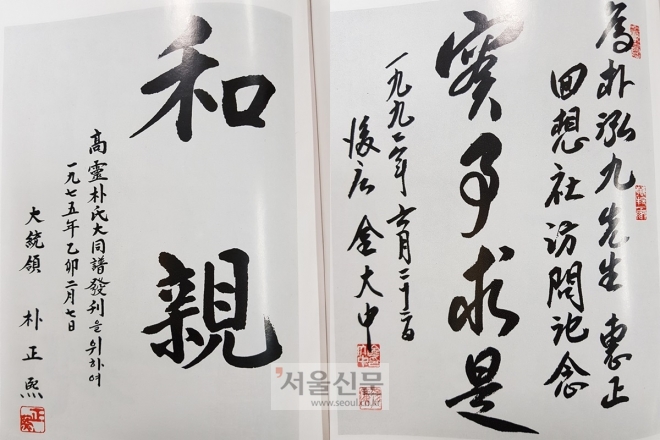 和親
高靈朴氏大同譜發刊을 위하여
一九七五年乙卯二月七日
大統領 朴正熙
正熙
為朴泓九先生 惠正
回想社訪問記念
實事求是
一九九 年 六月二十
後広 金大中
서울신문
www.seoul.co.kr